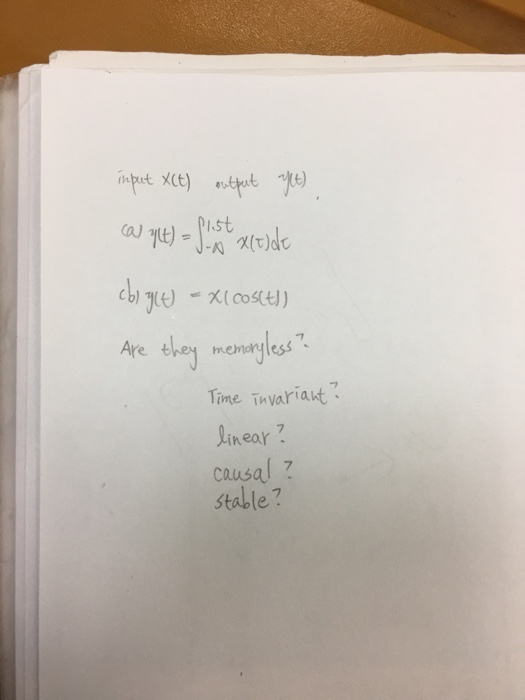 input x(t) output y(t).
(a) y(t) = ∫_{-∞}^{1.5t} x(τ)dτ
(b) y(t) = x(cos(t))
Are they memoryless?
Time invariant?
linear?
causal?
stable?